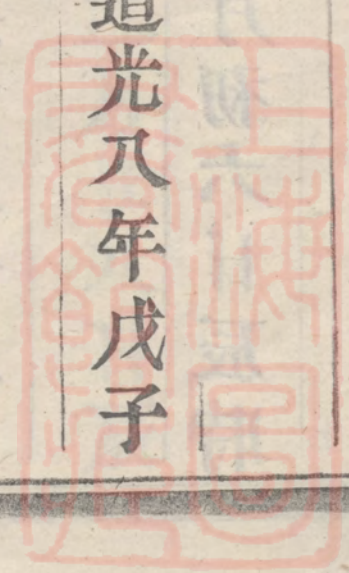 道光八年戊子
上海圖書館藏